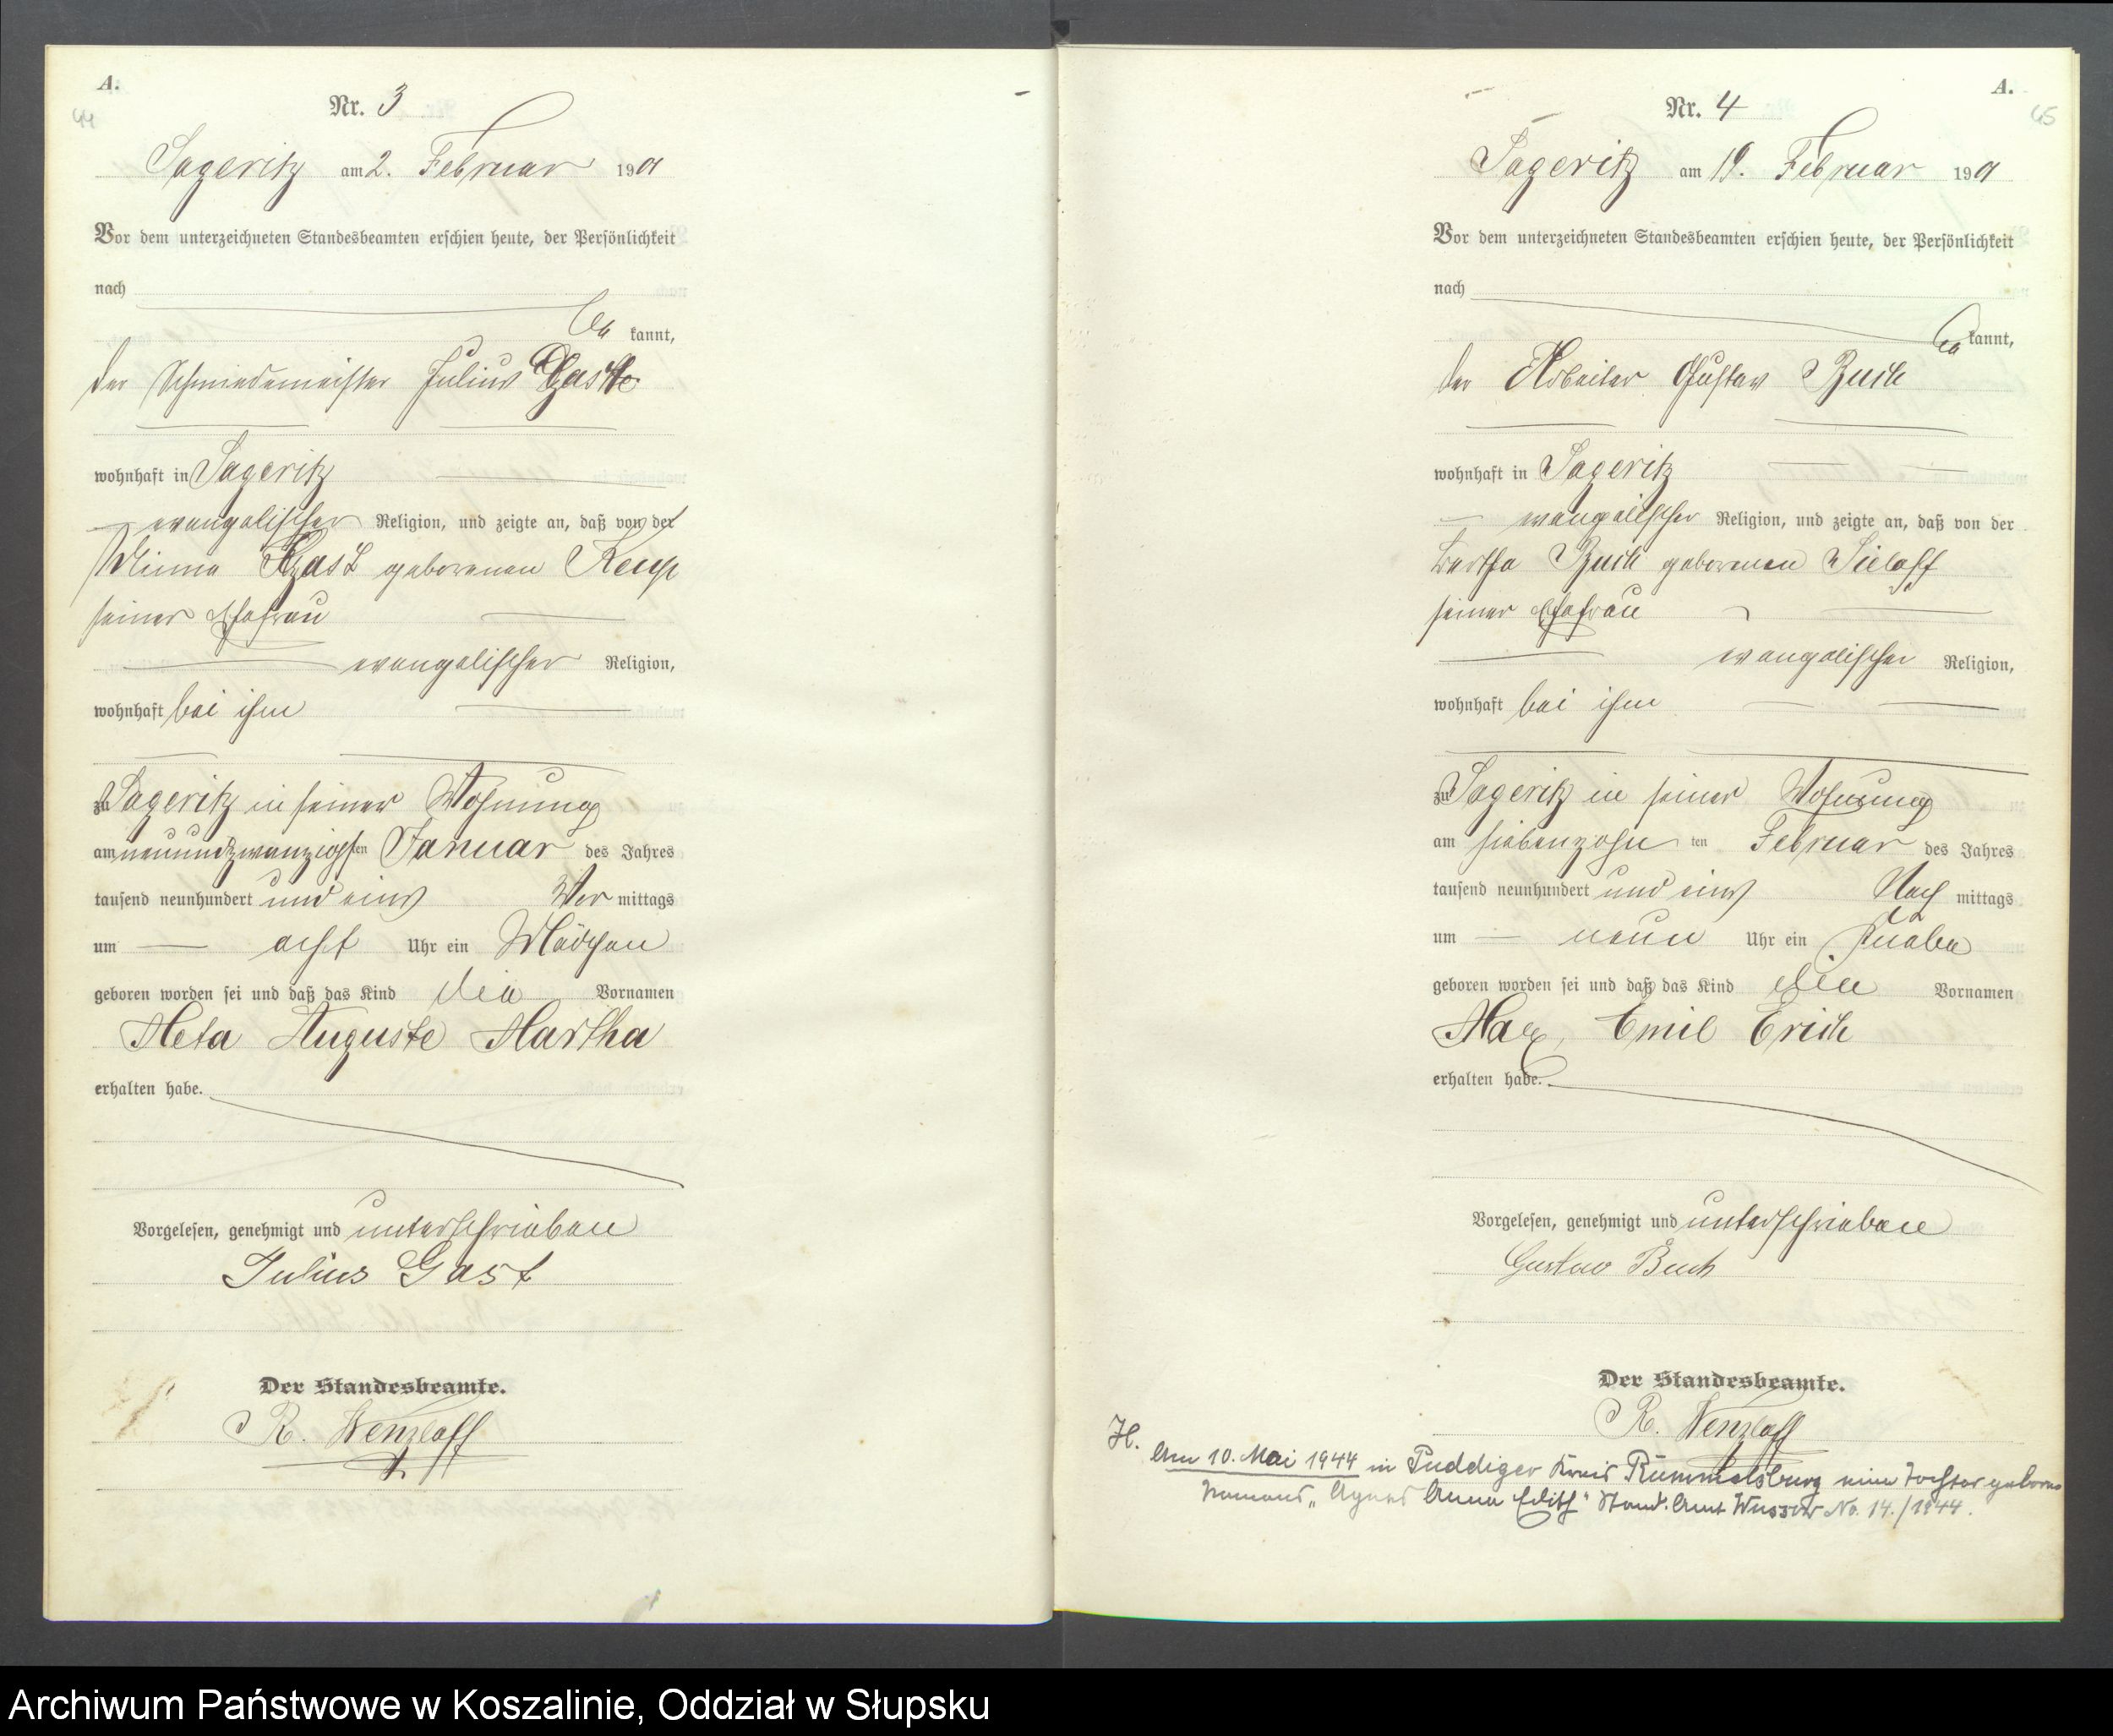 A.
44
Nr. 3
Sageritz am 2. Februar 1901
Vor dem unterzeichneten Standesbeamten erschien heute, der Persönlichkeit
nach
be kannt,
der Schmiedemeister Julius Gast
wohnhaft in Sageritz
evangelischer Religion, und zeigte an, daß von der
Minna Gast geborenen
seiner Ehefrau
evangelischer Religion,
wohnhaft bei ihm
zu Sageritz in seiner Wohnung
am neunundzwanzigsten Januar des Jahres
tausend neunhundert und eins Vor mittags
um acht Uhr ein Mädchen
geboren worden sei und daß das Kind die Vornamen
Meta Auguste Martha
erhalten habe.
Vorgelesen, genehmigt und unterschrieben
Julius Gast
Der Standesbeamte.
R. Wenzlaff
A.
45
Nr. 4
Sageritz am 19. Februar 1901
Vor dem unterzeichneten Standesbeamten erschien heute, der Persönlichkeit
nach
be kannt,
der Arbeiter Gustav Buch
wohnhaft in Sageritz
evangelischer Religion, und zeigte an, daß von der
Bertha Buch geborenen Sieloff
seiner Ehefrau
evangelischer Religion,
wohnhaft bei ihm
zu Sageritz in seiner Wohnung
am siebenzehn ten Februar des Jahres
tausend neunhundert und eins Nach mittags
um neun Uhr ein Knabe
geboren worden sei und daß das Kind die Vornamen
Max, Emil Erich
erhalten habe.
Vorgelesen, genehmigt und unterschrieben
Gustav Buch
Der Standesbeamte.
R. Wenzlaff
H. Am 10. Mai 1944 in Puddiger Kreis Rummelsburg eine Tochter geboren
Namens „Agnes Anna Edith" Stand. Amt Wussow No. 14./1944.
Archiwum Państwowe w Koszalinie, Oddział w Słupsku